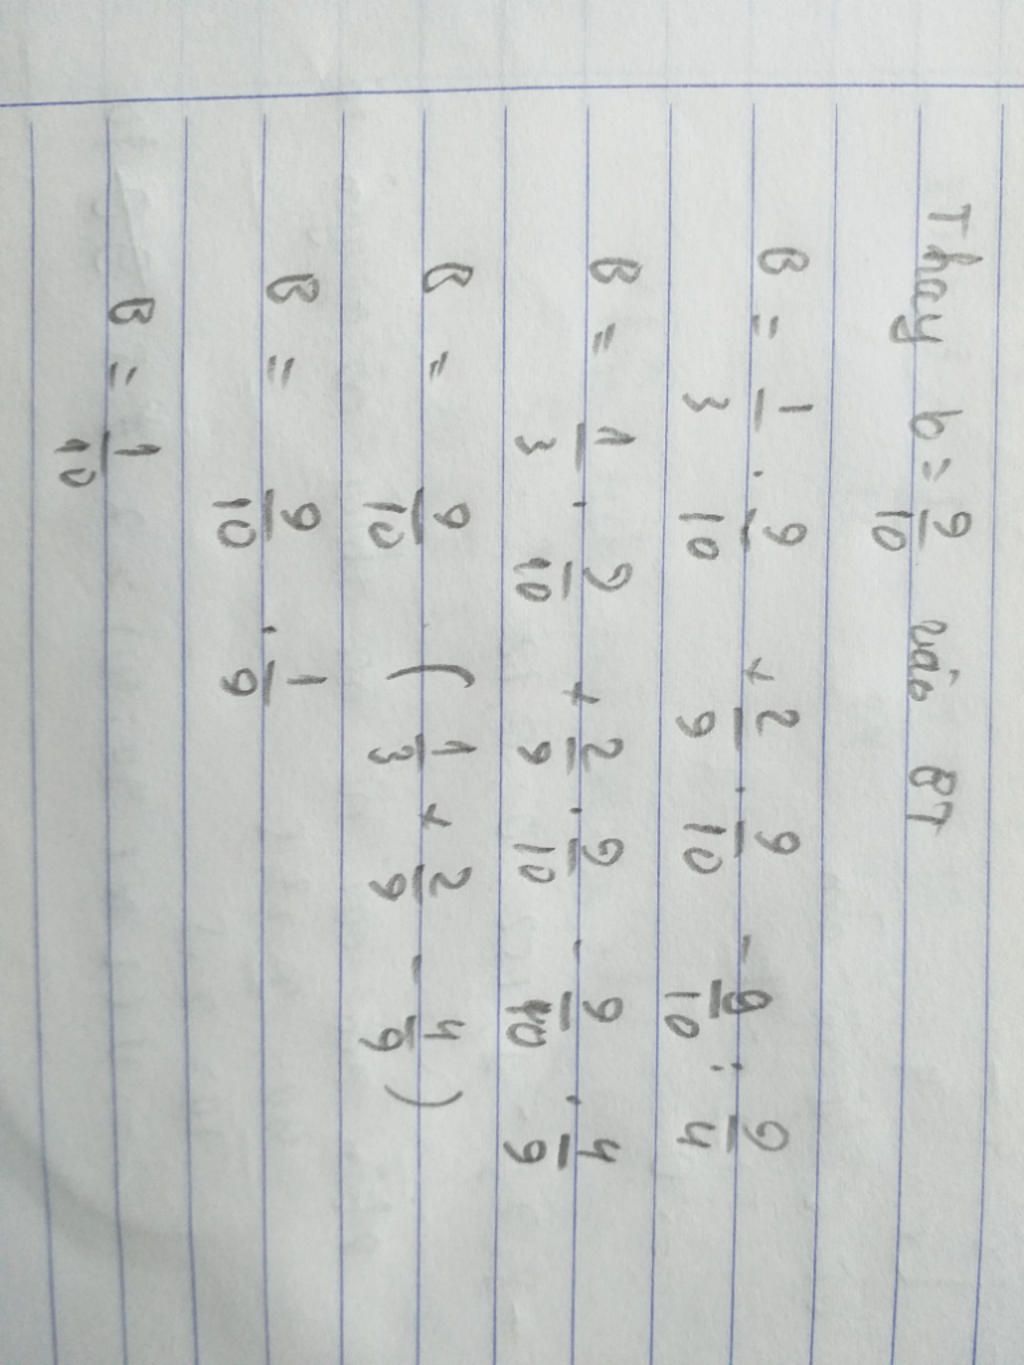 Thay b = 9/10 vào BT
B = 1/3 . 9/10 + 2/9 . 9/10 - 9/10 : 9/4
B = 1/3 . 9/10 + 2/9 . 9/10 - 9/10 . 4/9
B = 9/10 ( 1/3 + 2/9 - 4/9 )
B = 9/10 . 1/9
B = 1/10